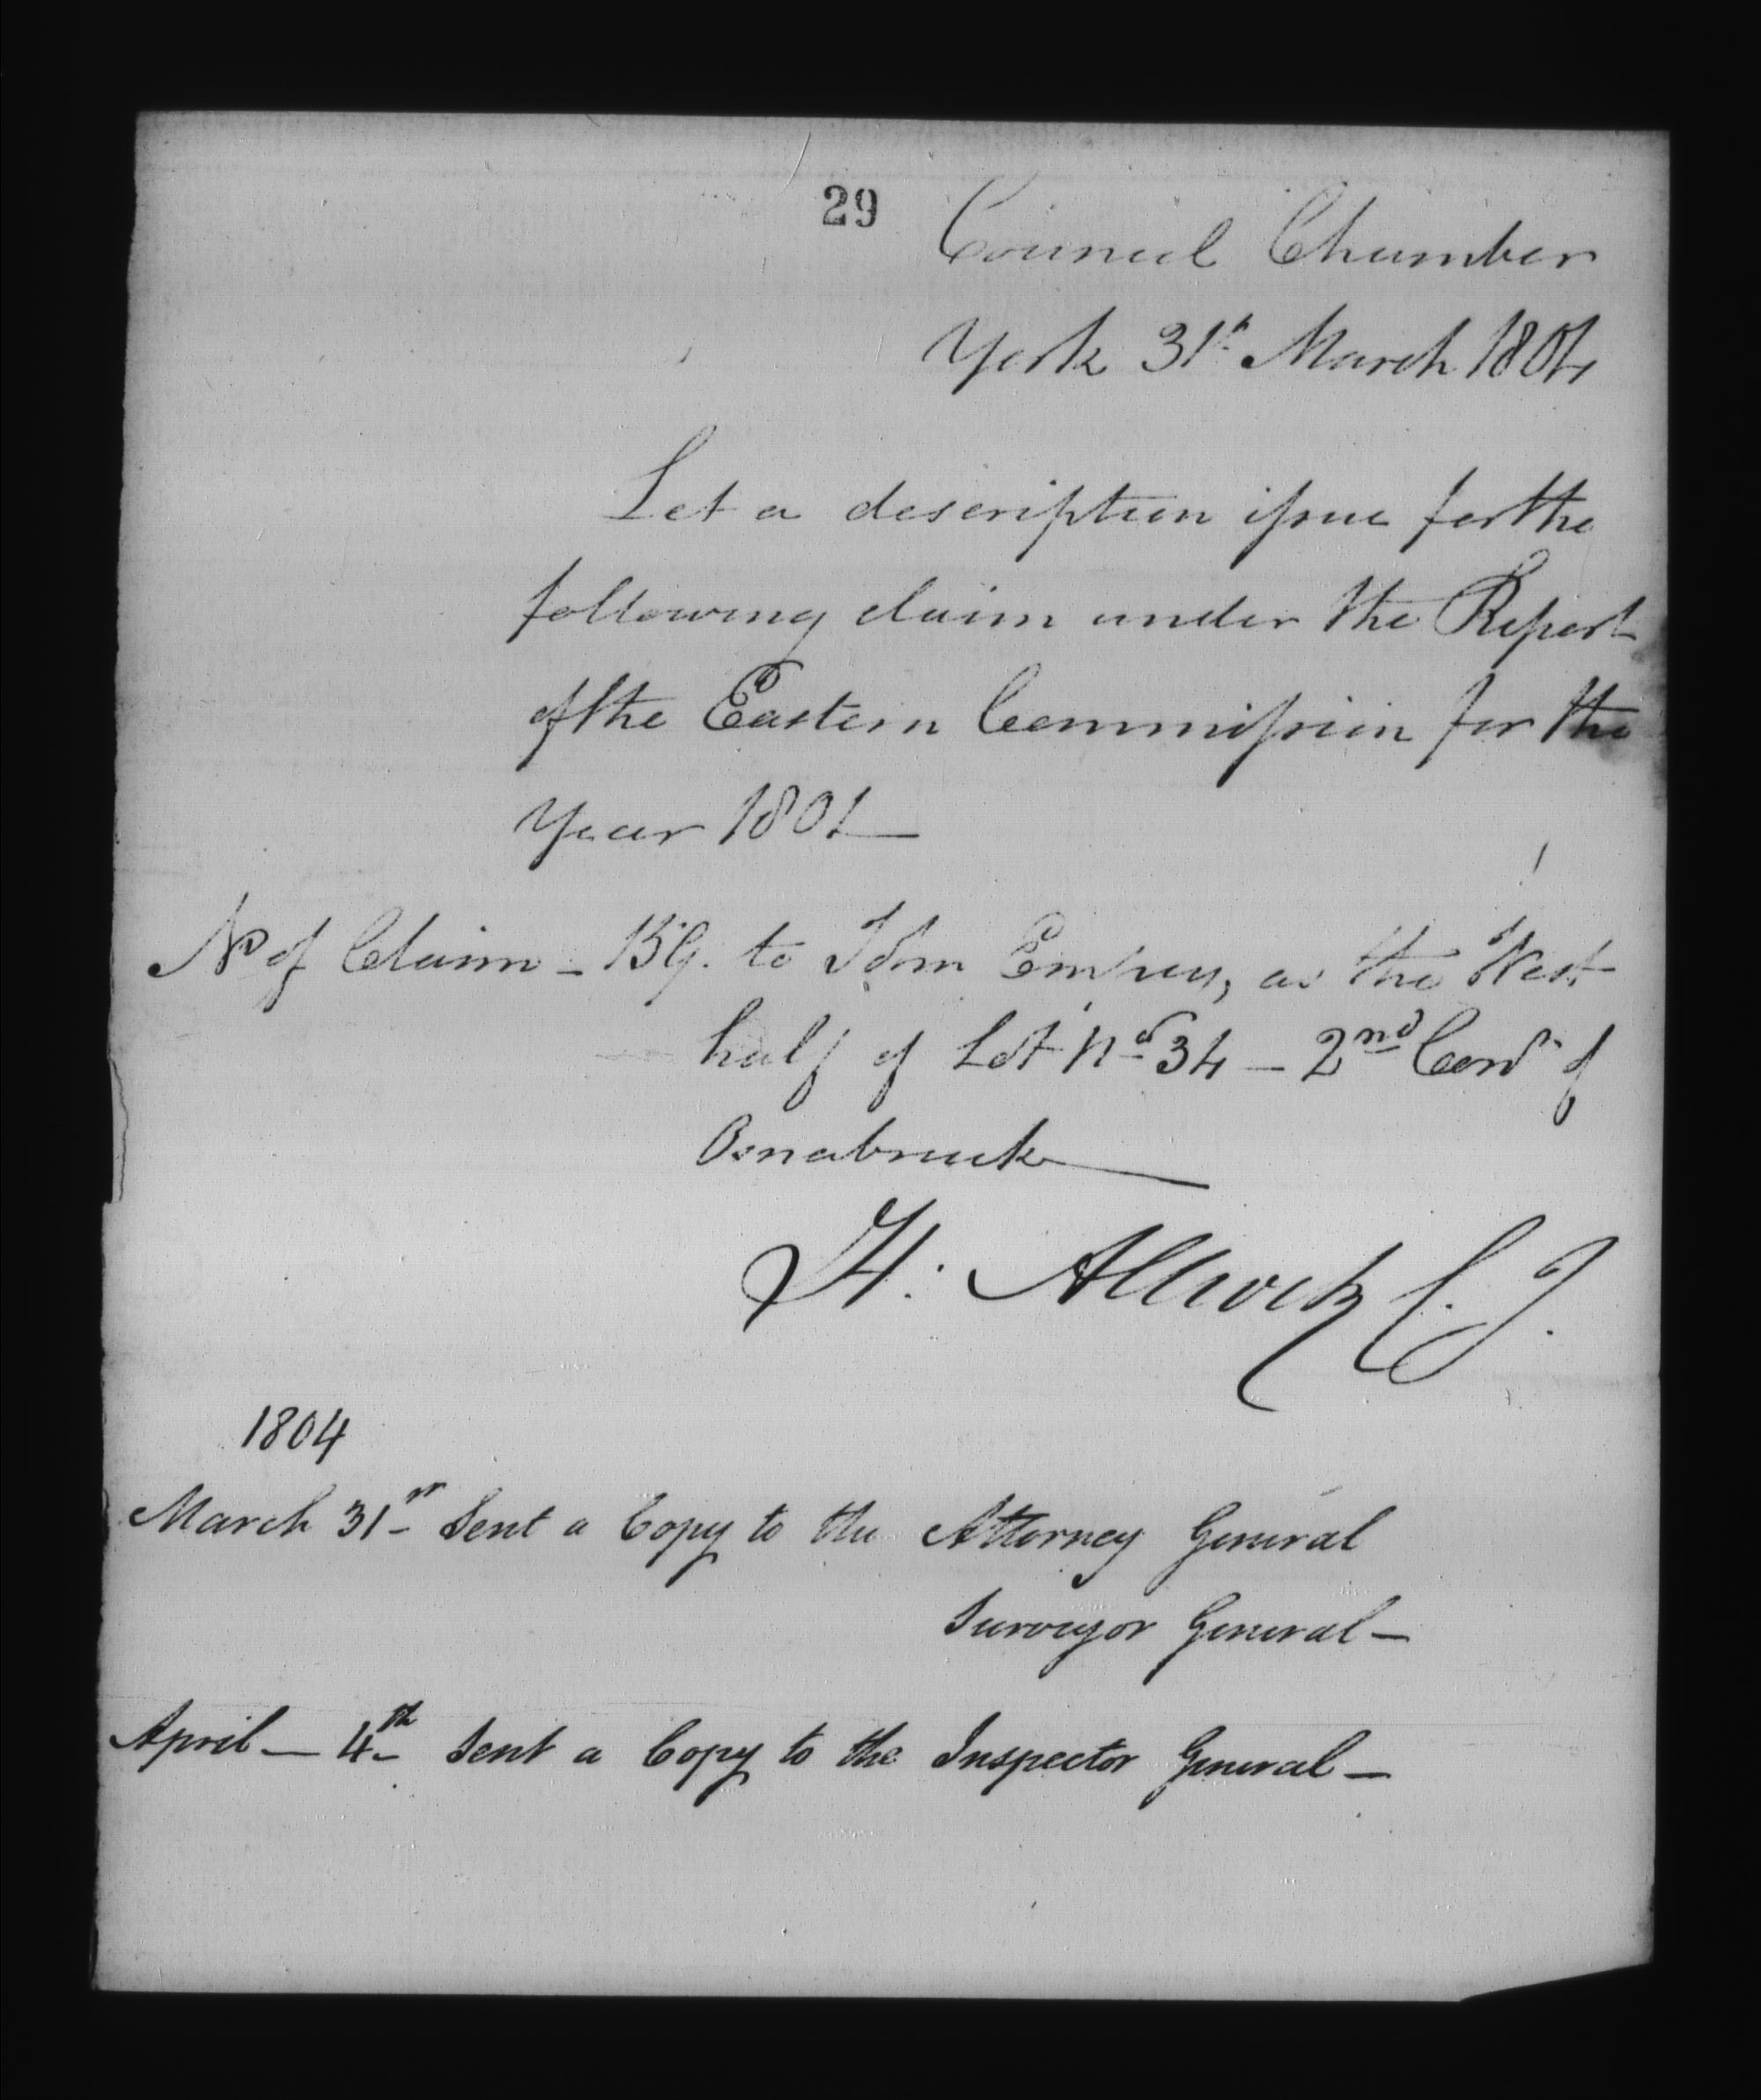 29
Council Chamber
York 31st March 1804
Let a description issue for the
following claim under the Report
of the Eastern Commission for the
Year 1801
No of Claim - 159. to John Empey, as the West
half of Lot No 34 - 2nd Conn of
Osnabruck
H. Allcock C. J.
1804
March 31st Sent a Copy to the Attorney General
Surveyor General -
April - 4th Sent a Copy to the Inspector General -